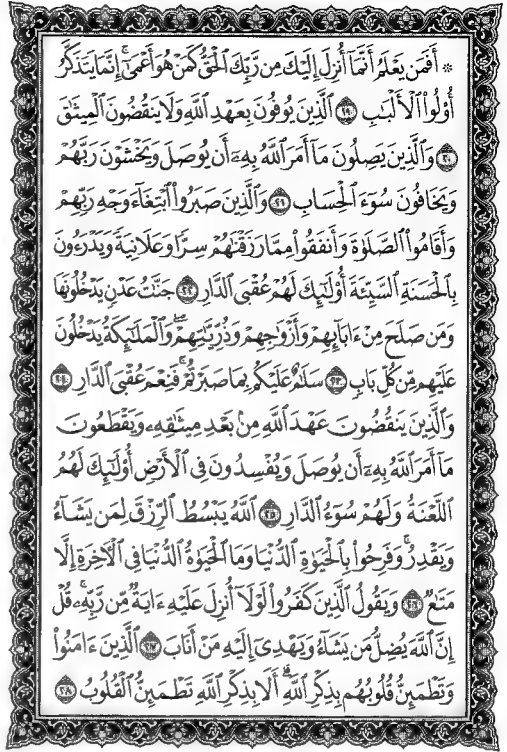 ۞ أَفَمَن يَعْلَمُ أَنَّمَا أُنزِلَ إِلَيْكَ مِن رَّبِّكَ الْحَقُّ كَمَنْ هُوَ أَعْمَىٰ ۚ إِنَّمَا يَتَذَكَّرُ
أُولُوا الْأَلْبَابِ ﴿١٩﴾ الَّذِينَ يُوفُونَ بِعَهْدِ اللَّهِ وَلَا يَنقُضُونَ الْمِيثَاقَ
﴿٢٠﴾ وَالَّذِينَ يَصِلُونَ مَا أَمَرَ اللَّهُ بِهِ أَن يُوصَلَ وَيَخْشَوْنَ رَبَّهُمْ
وَيَخَافُونَ سُوءَ الْحِسَابِ ﴿٢١﴾ وَالَّذِينَ صَبَرُوا ابْتِغَاءَ وَجْهِ رَبِّهِمْ
وَأَقَامُوا الصَّلَوٰةَ وَأَنفَقُوا مِمَّا رَزَقْنَٰهُمْ سِرًّا وَعَلَانِيَةً وَيَدْرَءُونَ
بِالْحَسَنَةِ السَّيِّئَةَ أُولَٰئِكَ لَهُمْ عُقْبَى الدَّارِ ﴿٢٢﴾ جَنَّٰتُ عَدْنٍ يَدْخُلُونَهَا
وَمَن صَلَحَ مِنْ ءَابَائِهِمْ وَأَزْوَٰجِهِمْ وَذُرِّيَّٰتِهِمْ ۖ وَالْمَلَٰئِكَةُ يَدْخُلُونَ
عَلَيْهِم مِّن كُلِّ بَابٍ ﴿٢٣﴾ سَلَٰمٌ عَلَيْكُم بِمَا صَبَرْتُمْ ۚ فَنِعْمَ عُقْبَى الدَّارِ ﴿٢٤﴾
وَالَّذِينَ يَنقُضُونَ عَهْدَ اللَّهِ مِن بَعْدِ مِيثَٰقِهِ وَيَقْطَعُونَ
مَا أَمَرَ اللَّهُ بِهِ أَن يُوصَلَ وَيُفْسِدُونَ فِي الْأَرْضِ أُولَٰئِكَ لَهُمُ
اللَّعْنَةُ وَلَهُمْ سُوءُ الدَّارِ ﴿٢٥﴾ اللَّهُ يَبْسُطُ الرِّزْقَ لِمَن يَشَاءُ
وَيَقْدِرُ ۚ وَفَرِحُوا بِالْحَيَوٰةِ الدُّنْيَا وَمَا الْحَيَوٰةُ الدُّنْيَا فِي الْءَاخِرَةِ إِلَّا
مَتَٰعٌ ﴿٢٦﴾ وَيَقُولُ الَّذِينَ كَفَرُوا لَوْلَا أُنزِلَ عَلَيْهِ ءَايَةٌ مِّن رَّبِّهِ ۗ قُلْ
إِنَّ اللَّهَ يُضِلُّ مَن يَشَاءُ وَيَهْدِي إِلَيْهِ مَنْ أَنَابَ ﴿٢٧﴾ الَّذِينَ ءَامَنُوا
وَتَطْمَئِنُّ قُلُوبُهُم بِذِكْرِ اللَّهِ ۗ أَلَا بِذِكْرِ اللَّهِ تَطْمَئِنُّ الْقُلُوبُ ﴿٢٨﴾